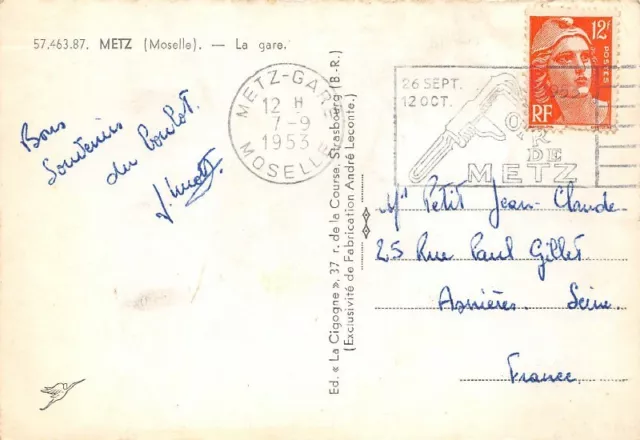 57.463.87. METZ (Moselle). — La gare.
Bons
Souvenirs
du
METZ-GARE
12 H
7-9
1953
MOSELLE
26 SEPT.
12 OCT.
DE
METZ
12F
POSTES
RF
Ed. « La Cigogne », 37 r. de la Course, Strasbourg (B.-R.)
(Exclusivité de Fabrication André Leconte.)
Mr Petit Jean-Claude
25 Rue Paul Gillet
Asnières. Seine.
France.